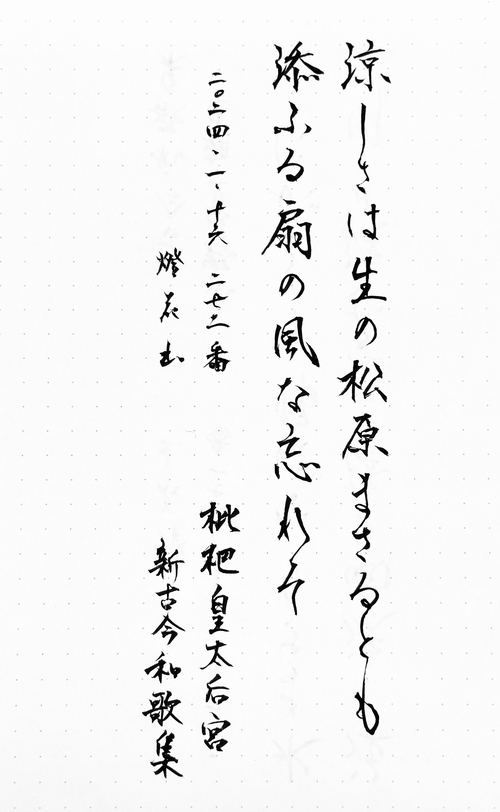 涼しさは生の松原まさるとも
添ふる扇の風な忘れそ
二〇二四、一、十六 二七二番
枇杷皇太后宮
燈花书
新古今和歌集